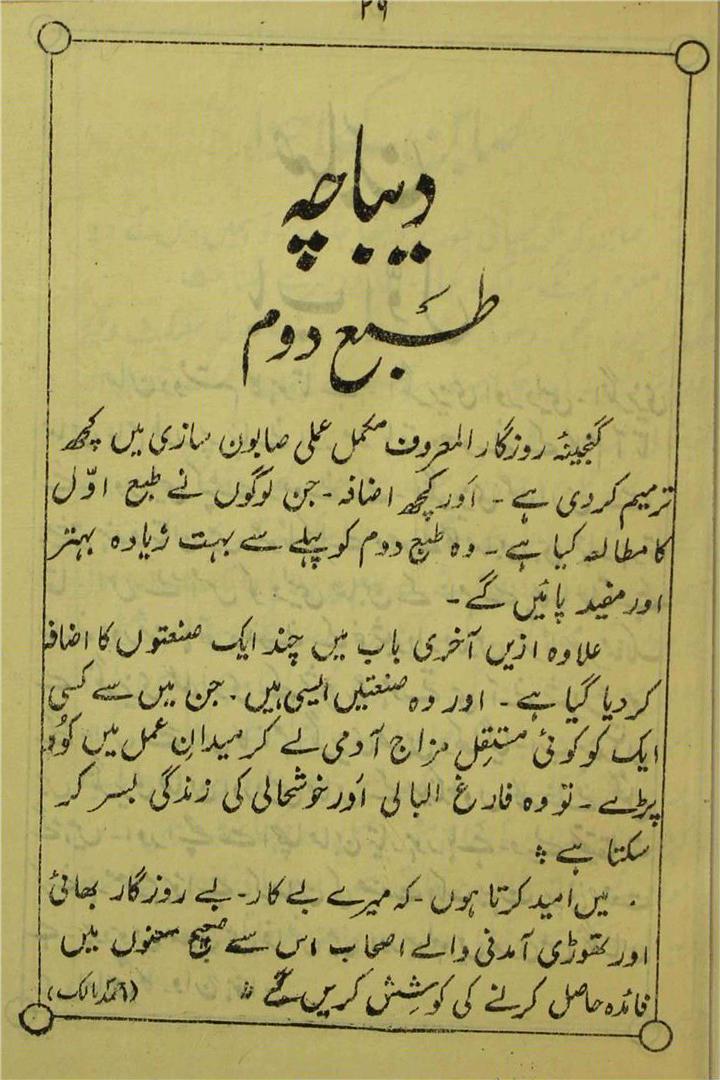 ۲۹
دیباچہ
طبع دوم
گنجینۂ روزگار المعروف مکمل عملی صابون سازی میں کچھ
ترمیم کردی ہے ۔ اَور کچھ اضافہ ۔ جن لوگوں نے طبع اوّل
کا مطالعہ کیا ہے ۔ وہ طبع دوم کو پہلے سے بہت زیادہ بہتر
اور مفید پائیں گے ۔
علاوہ ازیں آخری باب میں چند ایک صنعتوں کا اضافہ
کر دیا گیا ہے ۔ اور وہ صنعتیں ایسی ہیں ۔ جن میں سے کسی
ایک کو کوئی مستقل مزاج آدمی لے کر میدانِ عمل میں کُود
پڑے ۔ تو وہ فارغ البالی اَور خوشحالی کی زندگی بسر کر
سکتا ہے ؞
میں اُمید کرتا ہوں ۔ کہ میرے بے کار ۔ بے روزگار بھائی
اور تھوڑی آمدنی والے اصحاب اس سے صحیح معنوں میں
فائدہ حاصل کرنے کی کوشِش کریں گے ؞ (مالک)